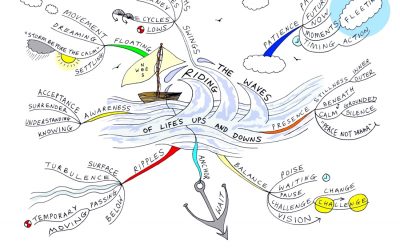 MOVEMENT
DREAMING
"STORM BEFORE THE CALM"
SETTLING
FLOATING
CYCLES
LOWS
SWINGS
PATIENCE
TIMING
ACTION
FLEETING
N
W
E
S
RIDING
THE WAVES
OF LIFE'S UPS AND DOWNS
ACCEPTANCE
SURRENDER
UNDERSTANDING
KNOWING
AWARENESS
PRESENCE
STILLNESS
INNER
OUTER
BENEATH
CALM
GROUNDED
SILENCE
RIPPLES
SURFACE
TURBULENCE
PASSING
BELOW
TEMPORARY
MOVING
ANCHOR
WAIT
BALANCE
POISE
WAITING
PAUSE
CHALLENGE
VISION
CHANGE
CHALLENGE